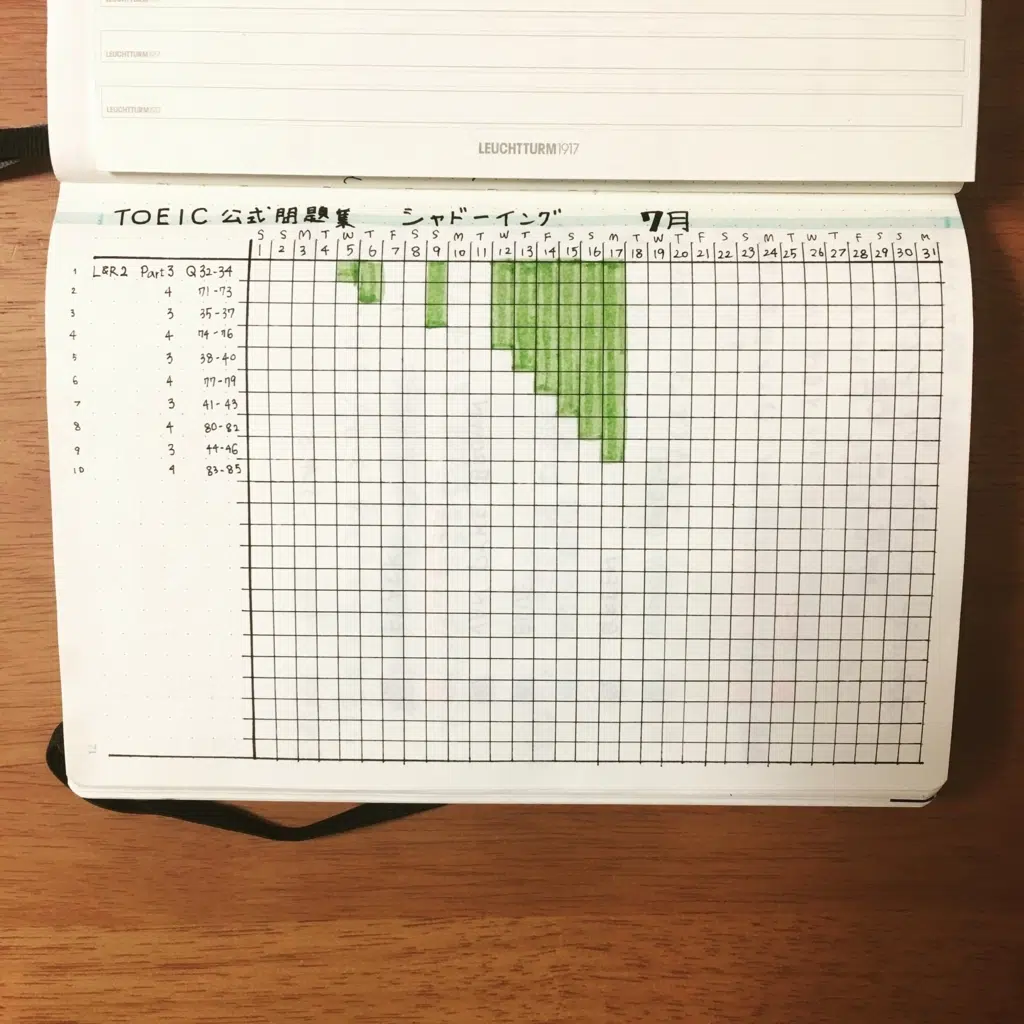 LEUCHTTURM1917
LEUCHTTURM1917
LEUCHTTURM1917
LEUCHTTURM1917
TOEIC 公式問題集 シャドーイング 7月
S S M T W T F S S M T W T F S S M T W T F S S M T W T F S S M
1 2 3 4 5 6 7 8 9 10 11 12 13 14 15 16 17 18 19 20 21 22 23 24 25 26 27 28 29 30 31
1 L&R2 Part3 Q32-34
2 4 71-73
3 3 35-37
4 4 74-76
5 3 38-40
6 4 77-79
7 3 41-43
8 4 80-82
9 3 44-46
10 4 83-85